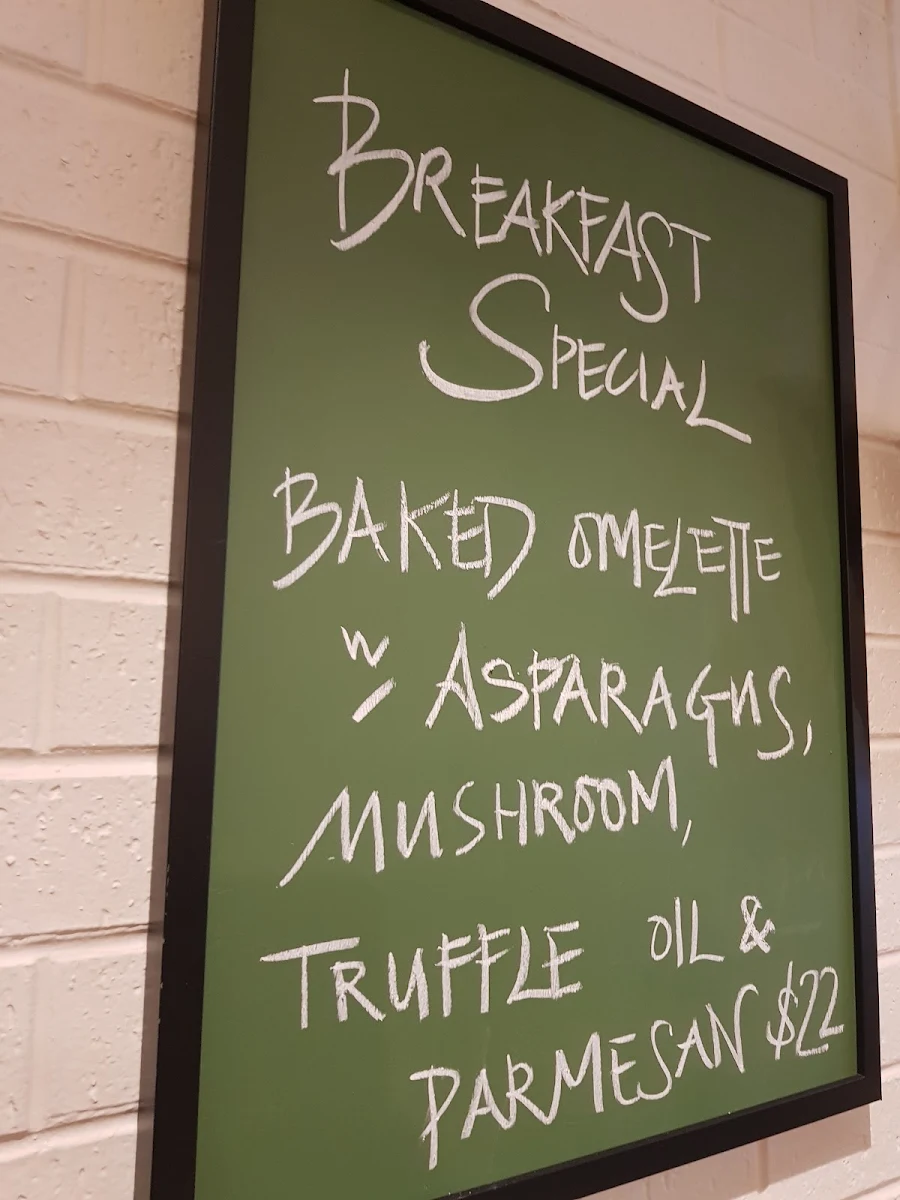 BREAKFAST
SPECIAL
BAKED OMELETTE
W/ ASPARAGUS,
MUSHROOM,
TRUFFLE OIL &
PARMESAN $22